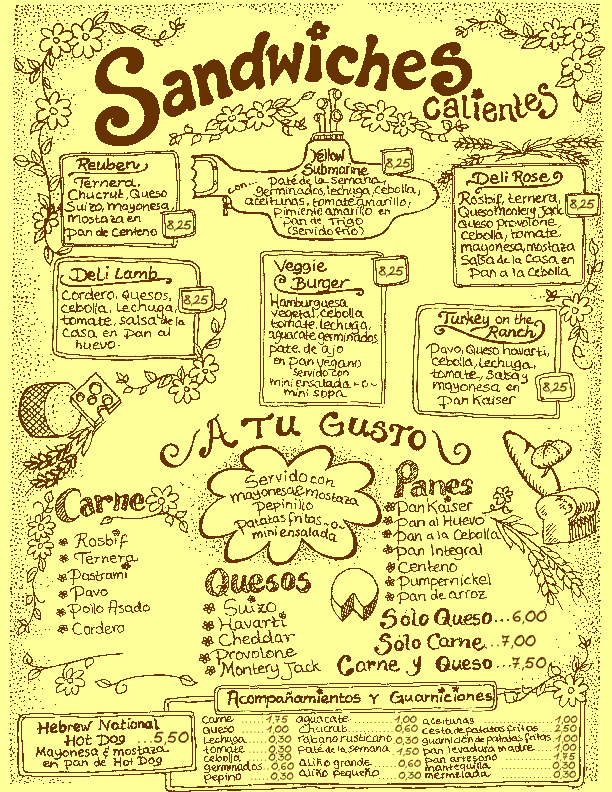 Sandwiches
calientes
Reuben
Ternera,
Chucrut, Queso
Suizo, mayonesa
mostaza en
pan de Centeno
8,25
Yellow
Submarine
8,25
con
paté de la Semana
germinados, lechuga, cebolla,
aceitunas, tomate amarillo,
pimiente amarillo en
pan de Trigo
(Servido frio)
Deli Rose
Rosbif, ternera,
8,25
Queso Montery Jack
Queso provolone
cebolla, tomate
mayonesa, mostaza
Salsa de la Casa en
Pan a la Cebolla
Deli Lamb
Cordero, Quesos,
cebolla, Lechuga,
8,25
tomate, salsa de la
Casa en pan al
huevo.
Veggie
Burger
8,25
Hamburguesa
vegetal, cebolla
tomate, lechuga,
aguacate germinados
paté de ajo
en pan vegano
servido con
mini ensalada -o-
mini sopa
Turkey on the
Ranch
Pavo, Queso havarti,
cebolla, lechuga,
tomate, Salsa y
mayonesa en
pan Kaiser
8,25
A Tu Gusto
Servido con
mayonesa & mostaza
Pepinillo
Patatas fritas -o-
mini ensalada
Carne
Rosbif
Ternera
Pastrami
Pavo
Pollo Asado
Cordero
Quesos
Suizo
Havarti
Cheddar
Provolone
Montery Jack
Panes
Pan Kaiser
Pan al Huevo
Pan a la Cebolla
Pan Integral
Centeno
Pumpernickel
Pan de arroz
Sólo Queso...6,00
Sólo Carne..7,00
Carne y Queso...7,50
Acompañamientos y Guarniciones
Hebrew National
Hot Dog 5,50
Mayonesa & mostaza
en pan de Hot Dog
carne 1,75
queso 1,00
lechuga 0,30
tomate 0,30
cebolla 0,30
germinados 0,60
pepino 0,30
aguacate 1,00
chucrut 0,60
rabano rusticano 0,30
paté de la semana 1,50
aliño grande 0,60
aliño pequeño 0,30
aceitunas 1,00
cesta de patatas fritas 2,50
guarnición de patatas fritas 1,00
pan levadura madre 1,00
pan artesano 1,75
mantequilla 0,30
mermelada 0,30